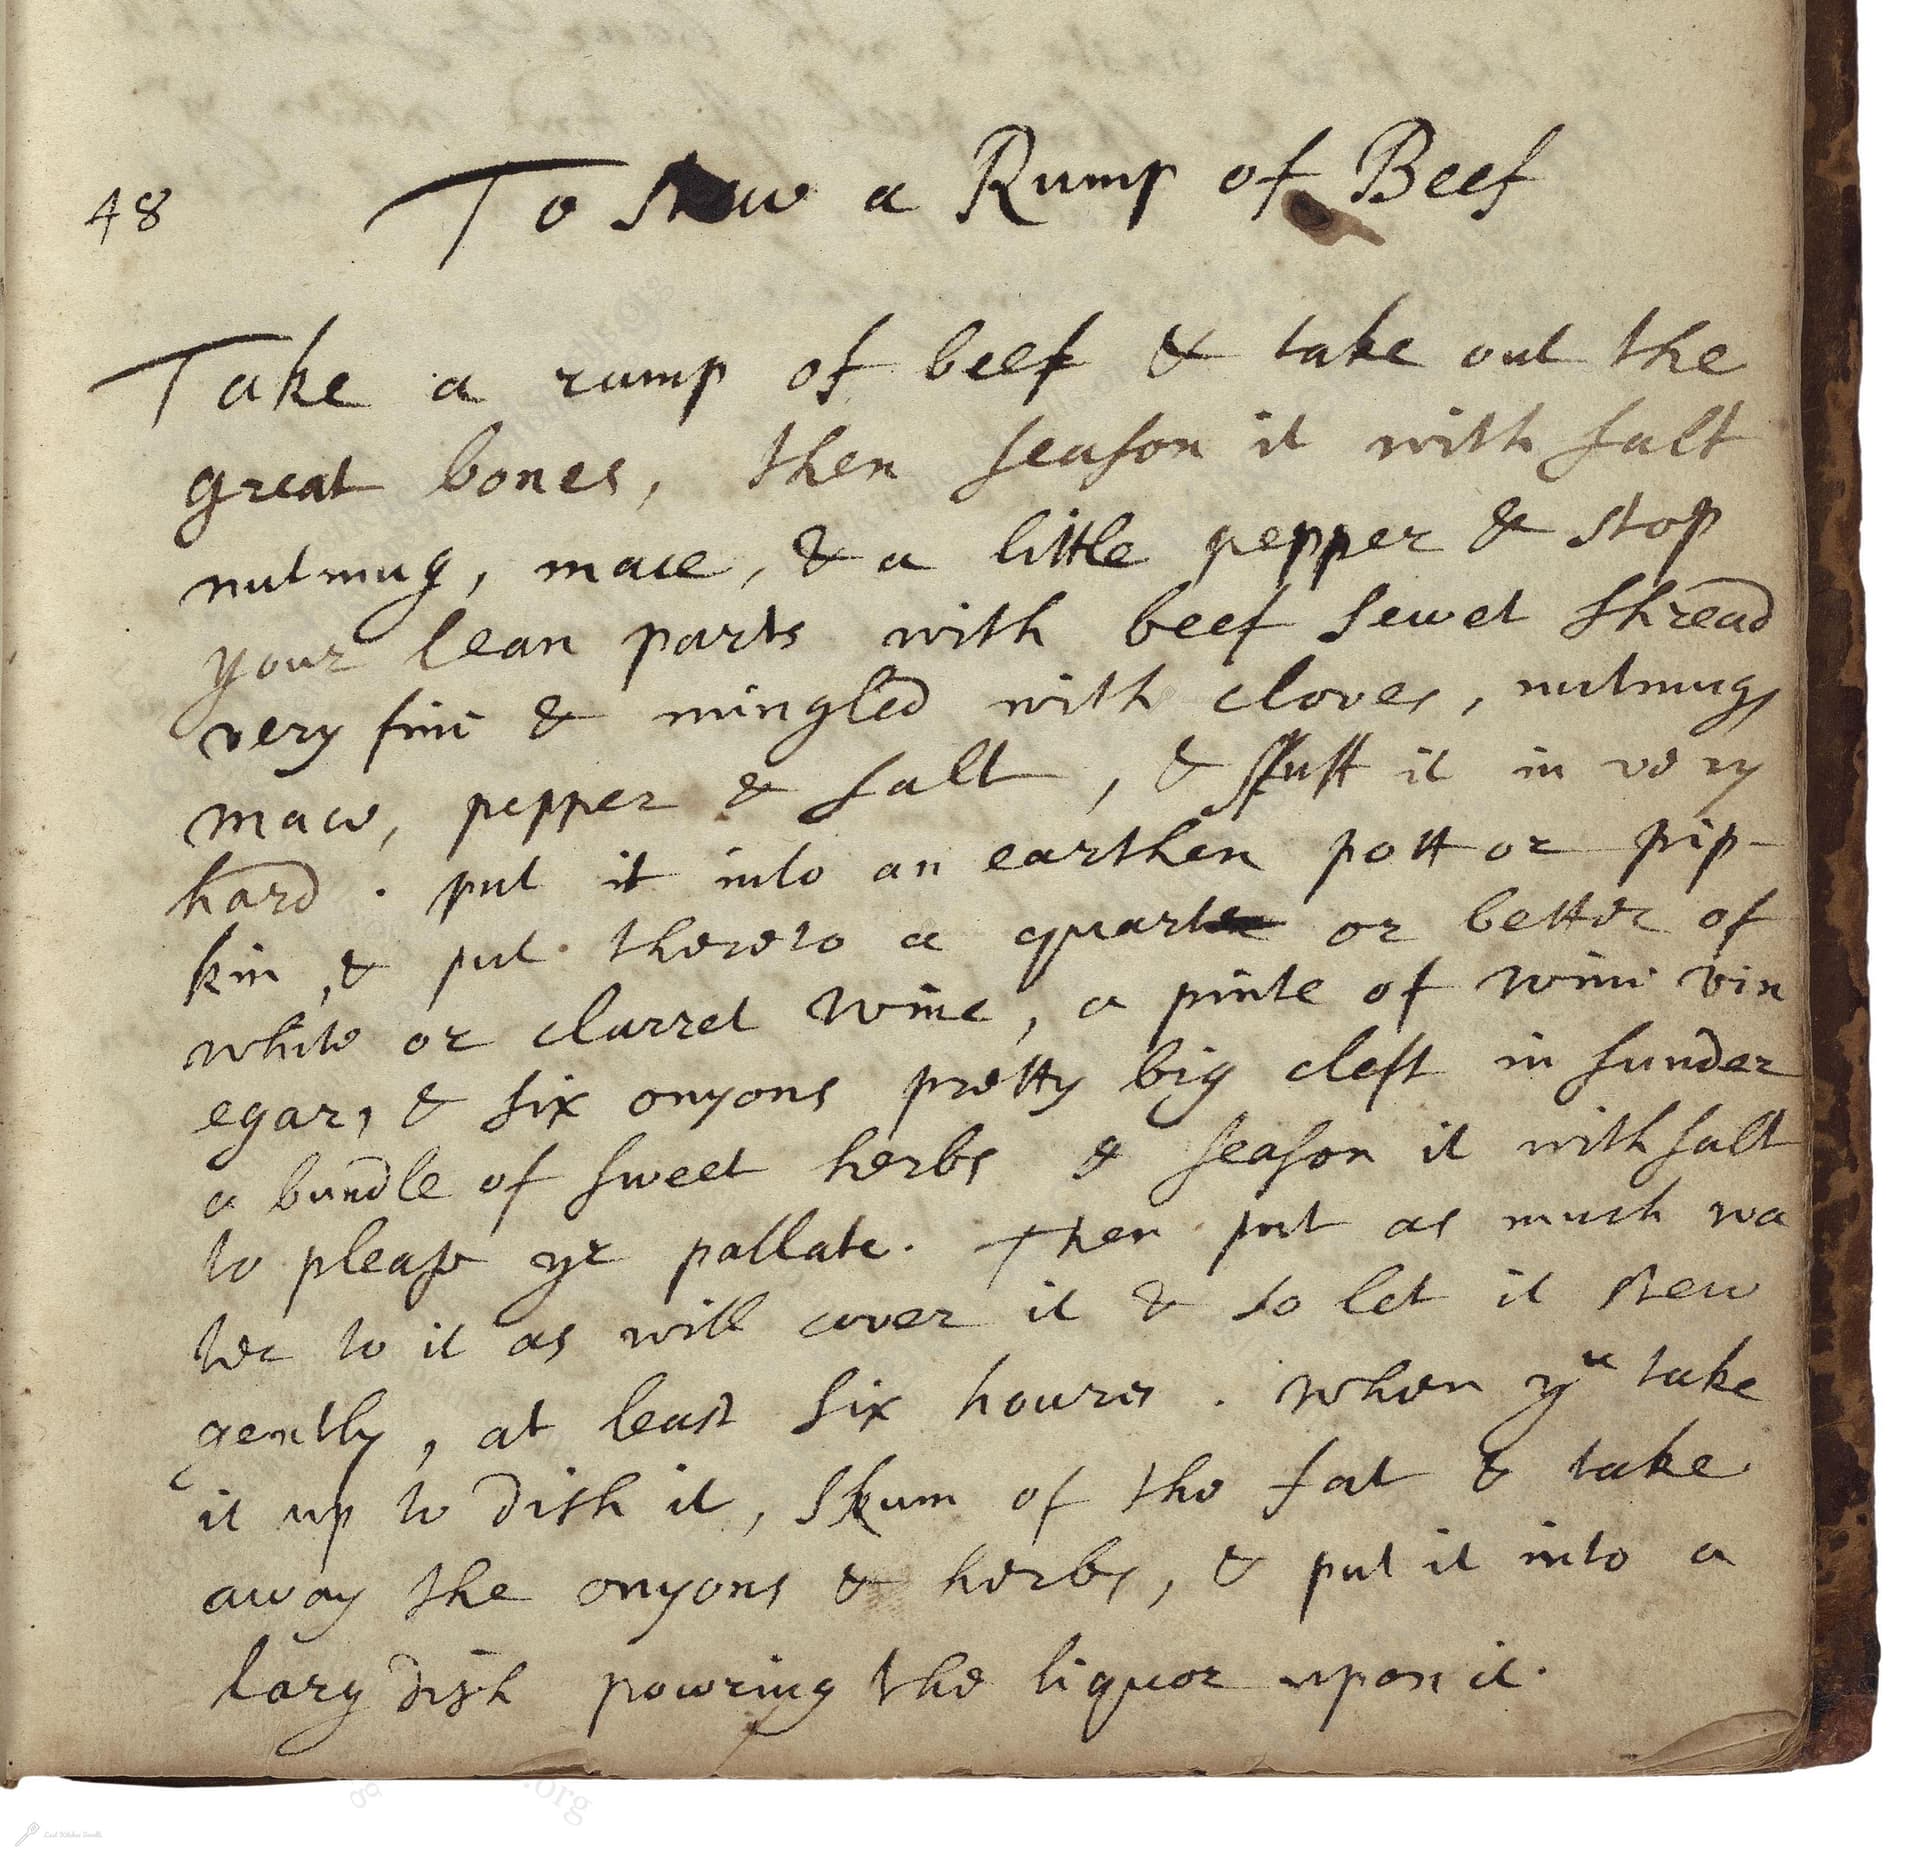 48 To stew a Rump of Beef
Take a rump of beef & take out the
great bones, then season it with salt
nutmug, mace, & a little pepper & stop
your lean parts with beef sewet shread
very fine & mingled with cloves, nutmugs
mace, pepper & salt, & stuff it in very
hard. put it into an earthen pott or pip-
kin, & put thereto a quart or better of
white or clarret wine, a pinte of wine vin
egar, & six onyons pretty big cleft in sunder
a bundle of sweet herbs & season it with salt
to please yr pallate. Then put as much wa
ter to it as will cover it & so let it stew
gently, at least six houres. when yu take
it up to dish it, skum of the fat & take
away the onyons & herbs, & put it into a
larg dish powring the liquor upon it.
.org